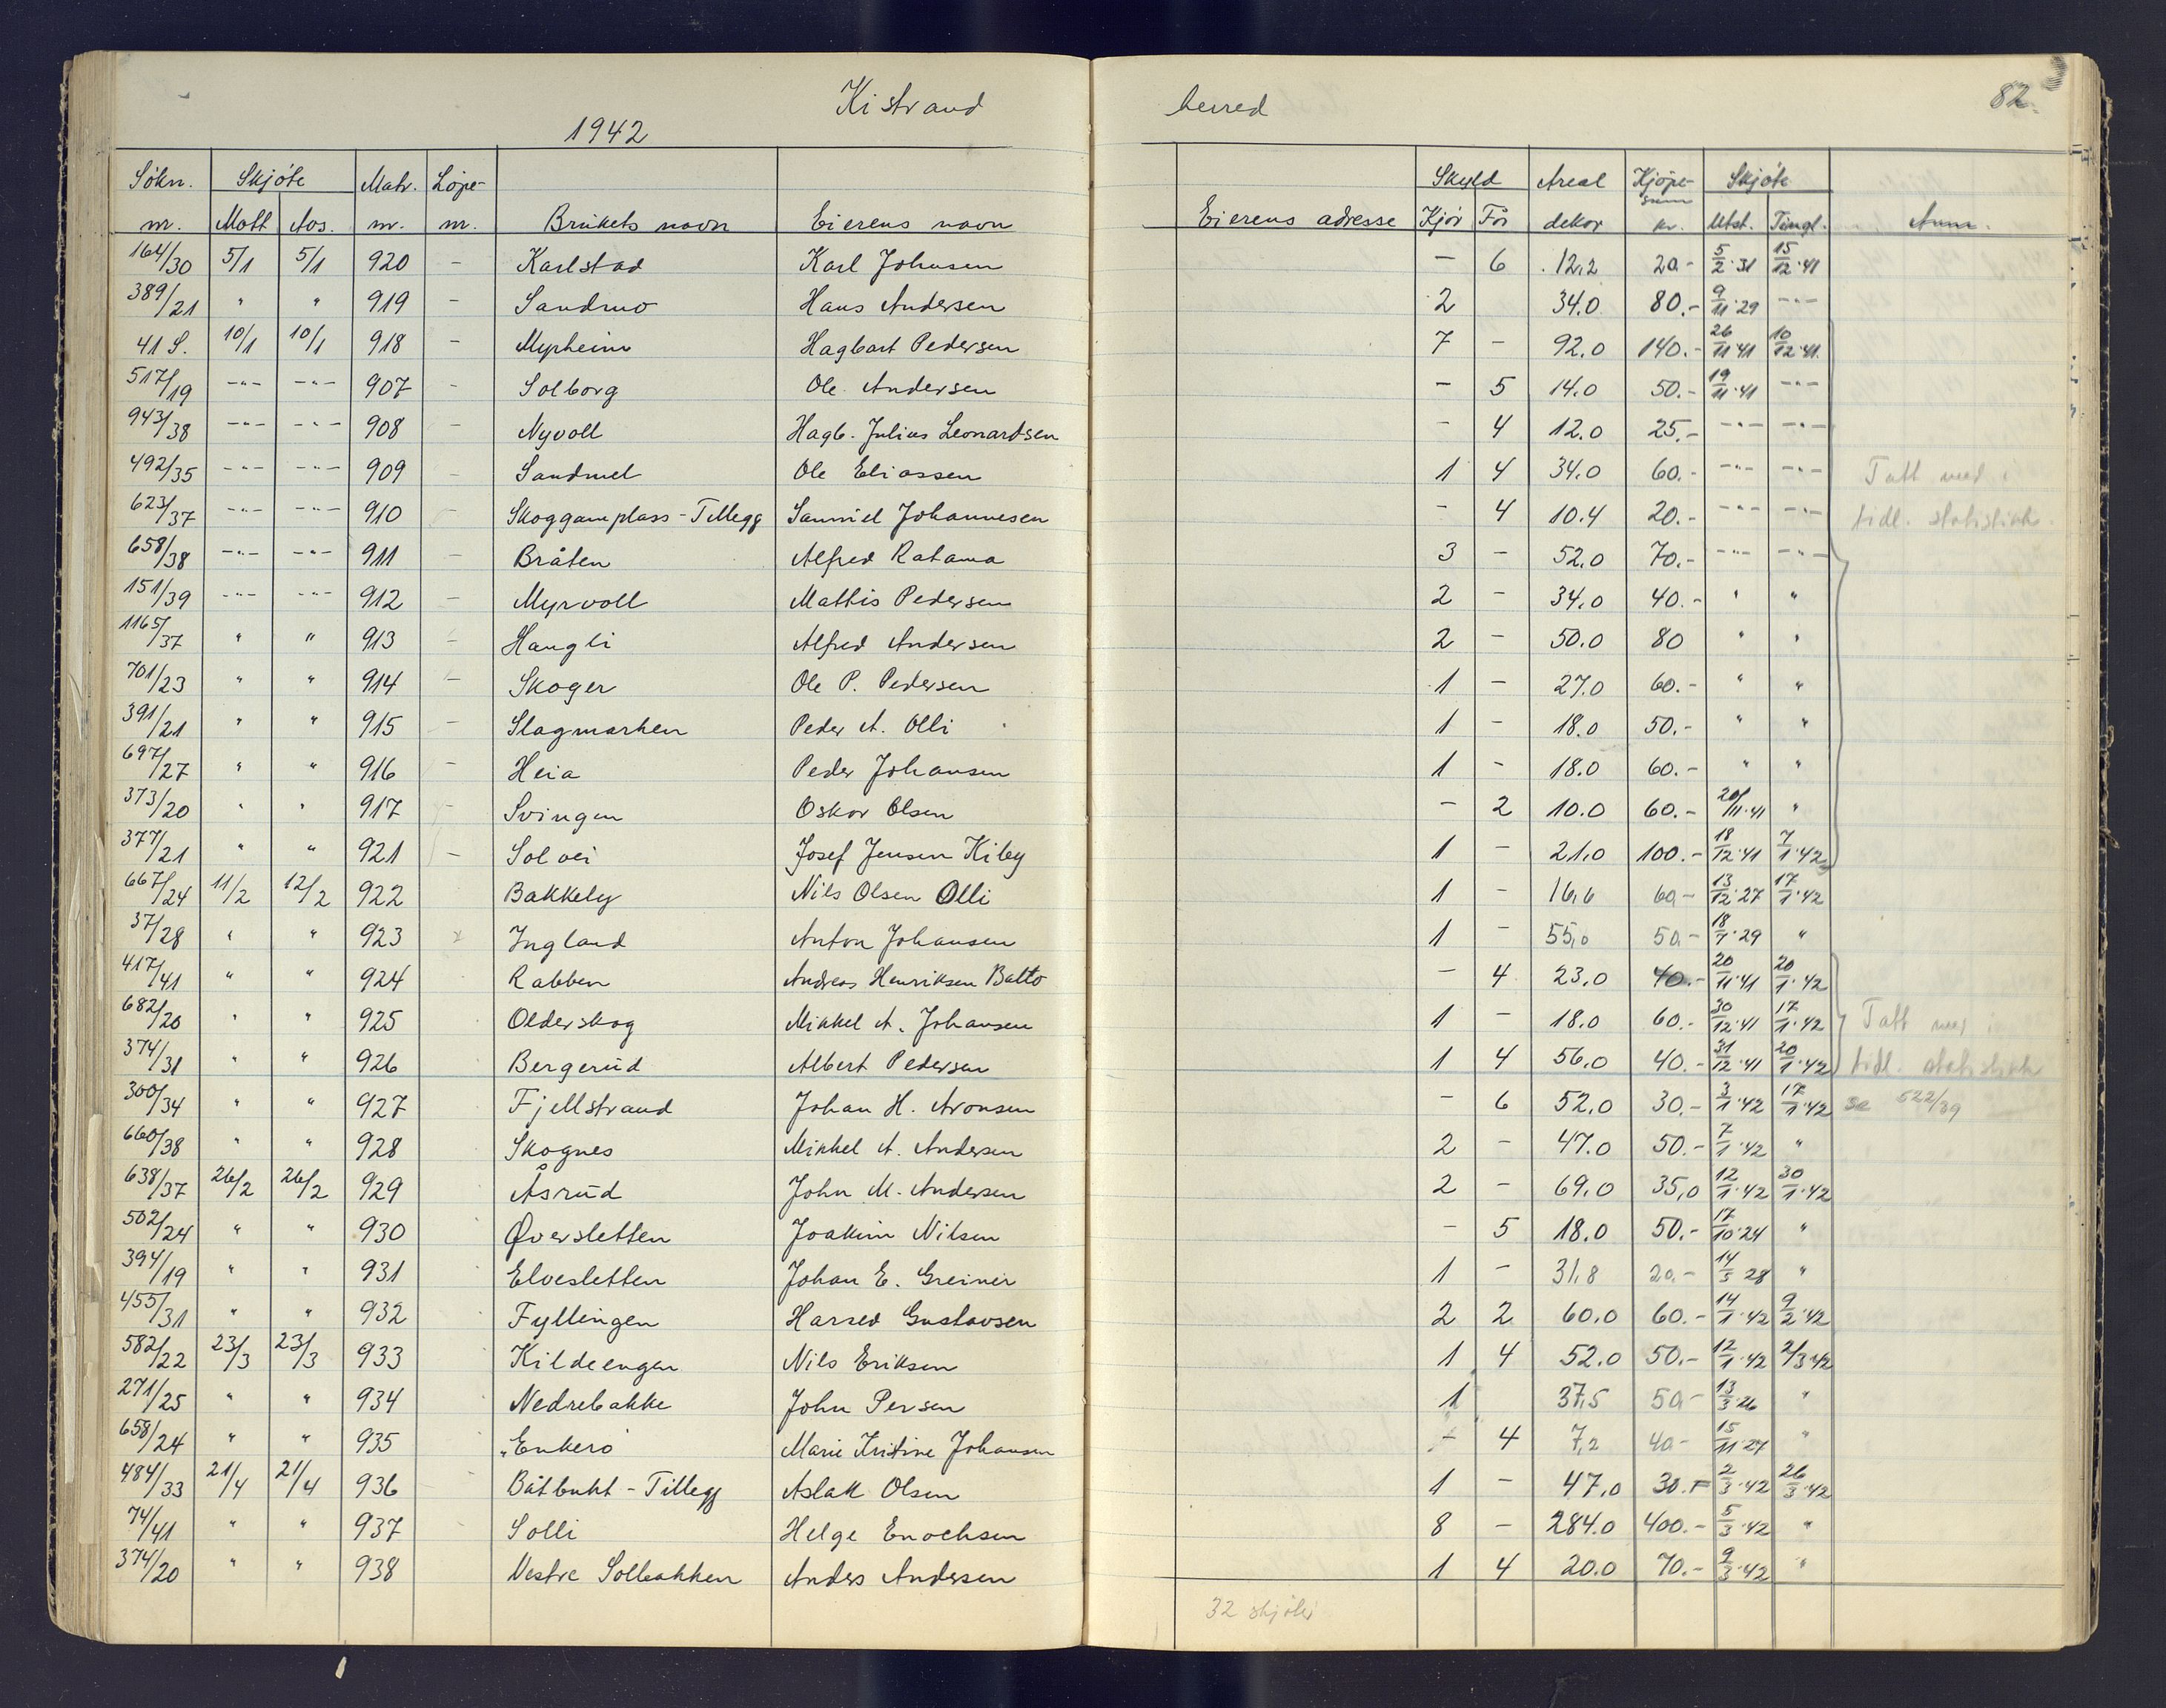 Kistrand herred 82.
1942
Søkn. Skjöte Matr. Löpe- Skyld Areal Kjöpe- Skjöte
nr. Mott Avs. nr. nr. Brukets navn Eierens navn Eierens adresse Kjör För dekar sum kr. Utst. Tingl. Anm.
164/30 5/1 5/1 920 - Karlstad Karl Johnsen - 6 12,2 20.- 5/2-31 15/12-41
389/21 " " 919 - Sandmo Hans Andersen 2 34.0 80.- 9/11-29 -"-
41 S. 10/1 10/1 918 - Myrheim Hagbart Pedersen 7 - 92.0 140.- 26/11-41 10/12-41
517/19 -"- -"- 907 - Solborg Ole Andersen - 5 14.0 50.- 19/11-41 -"-
943/38 -"- -"- 908 - Nyvoll Hagb. Julius Leonardsen - 4 12.0 25.- -"- -"-
492/35 -"- -"- 909 - Sandmel Ole Eliassen 1 4 34.0 60.- -"- -"- Tatt med i
623/37 -"- -"- 910 - Skoggamplass - Tillegg Samuel Johannesen - 4 10.4 20.- -"- -"- tidl. statistikk.
658/38 -"- -"- 911 - Bråten Alfred Ratama 3 - 52.0 70.- -"- -"-
151/39 -"- -"- 912 - Myrvoll Mattis Pedersen 2 - 34.0 40.- " "
1165/37 " " 913 - Haugli Alfred Andersen 2 - 50.0 80 " "
701/23 " " 914 - Skoger Ole P. Pedersen 1 - 27.0 60.- " "
391/21 " " 915 - Slagmarken Peder A. Olli 1 - 18.0 50.- " "
697/27 " " 916 - Heia Peder Johansen 1 - 18.0 60.- " "
373/20 " " 917 - Svingen Oskar Olsen - 2 10.0 60.- 20/11-41 "
377/21 " " 921 - Solvei Josef Jensen Kiby 1 - 21.0 100.- 18/12-41 7/1-42
667/24 11/2 12/2 922 Bakkely Nils Olsen Olli 1 - 16,6 60,- 13/12-27 17/1-42
37/28 " " 923 Ingland Anton Johansen 1 - 55,0 50,- 18/7-29 "
417/41 " " 924 Rabben Andreas Henriksen Balto - 4 23.0 40.- 20/11-41 20/1-42
682/20 " " 925 Olderskog Mikkel A. Johansen 1 - 18.0 60.- 30/12-41 17/1-42 Tatt med i
374/31 " " 926 Bergerud Albert Pedersen 1 4 56.0 40.- 31/12-41 20/1-42 tidl. statistikk
300/34 " " 927 Fjellstrand Johan H. Aronsen - 6 52.0 30.- 3/1-42 17/1-42 se 522/39
660/38 " " 928 Skognes Mikkel A. Andersen 2 - 47.0 50.- 7/1-42 "
638/37 26/2 26/2 929 Åsrud John M. Andersen 2 - 69.0 35,0 12/1-42 30/1-42
502/24 " " 930 Øversletten Joakim Nilsen - 5 18.0 50.- 17/10-24 "
394/19 " " 931 Elvesletten Johan E. Greiner 1 - 31,8 20.- 14/5 28 "
455/31 " " 932 Fyllingen Harred Gustavsen 2 2 60.0 60.- 14/1-42 9/2-42
582/22 23/3 23/3 933 Kildeengen Nils Eriksen 1 4 52.0 50.- 12/1-42 2/3-42
271/25 " " 934 Nedrebakke John Persen 1 37,5 50,- 13/3-26 "
658/24 " " 935 "Enkero Marie Kristine Johansen - 4 7,2 40,- 15/11-27 "
484/33 21/4 21/4 936 Båtbukt - Tillegg Aslak Olsen 1 - 47.0 30.- 2/3-42 26/3-42
74/41 " " 937 Solli Helge Enochsen 8 - 284.0 400.- 5/3-42 "
374/20 " " 938 Vestre Solbakken Anders Andersen 1 4 20.0 70.- 9/3-42 "
32 skjöter